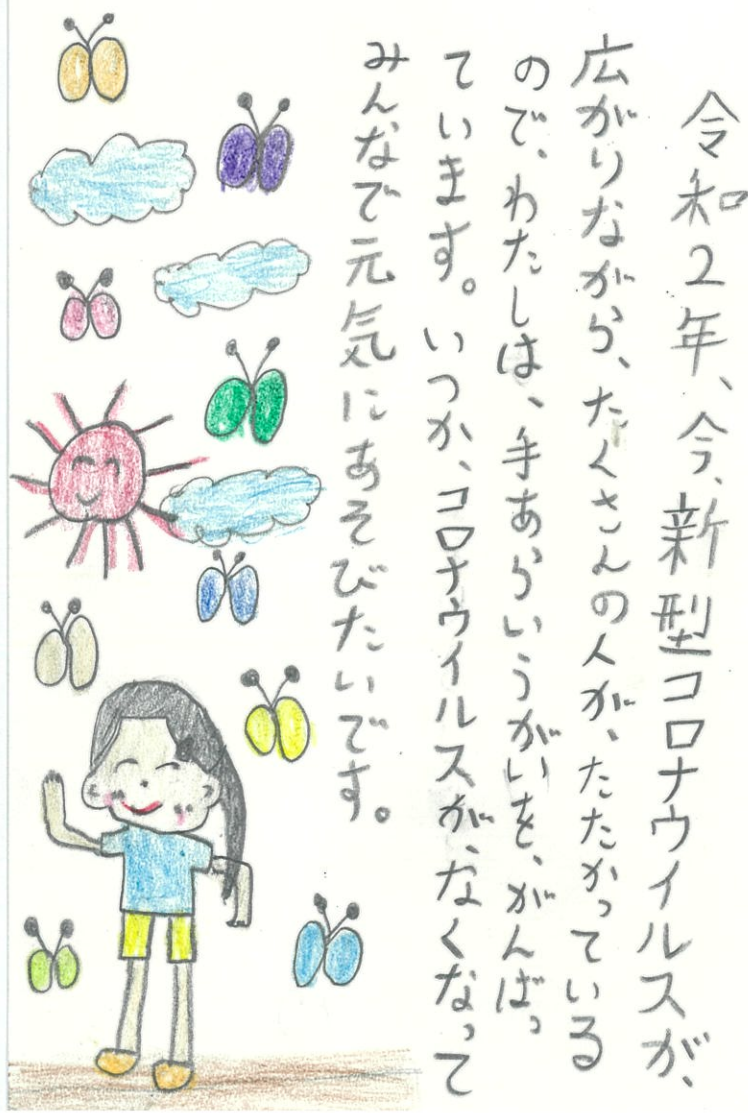 令和2年、今、新型コロナウイルスが、
広がりながら、たくさんの人が、たたかっている
ので、わたしは、手あらいうがいを、がんばっ
ています。いつか、コロナウイルスが、なくなって
みんなで元気にあそびたいです。